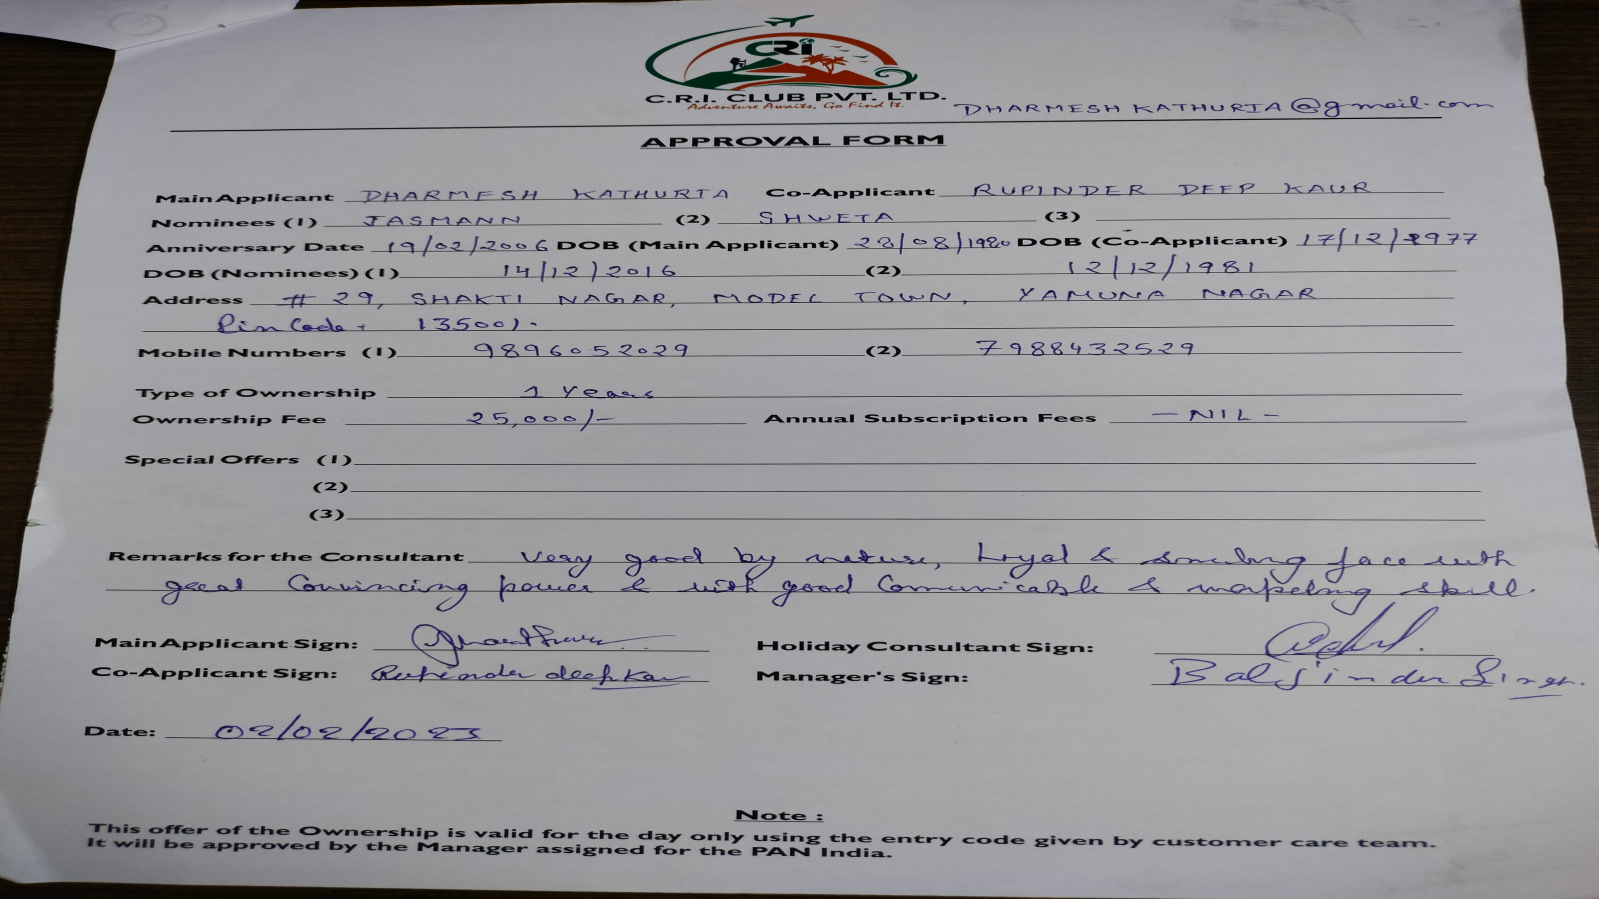 CRI
C.R.I. CLUB PVT. LTD.
Adventure Awaits, Go Find It.
DHARMESH KATHURIA@gmail.com
APPROVAL FORM
Main Applicant DHARMESH KATHURIA Co-Applicant RUPINDER DEEP KAUR
Nominees (1) JASMANN (2) SHWETA (3)
Anniversary Date 19/02/2006 DOB (Main Applicant) 28/08/1980 DOB (Co-Applicant) 17/12/1977
DOB (Nominees) (1) 14/12/2016 (2) 12/12/1981
Address # 29, SHAKTI NAGAR, MODEL TOWN, YAMUNA NAGAR
Pin Code + 135001.
Mobile Numbers (1) 9896052029 (2) 7988432529
Type of Ownership 1 Years
Ownership Fee 25,000/- Annual Subscription Fees - NIL -
Special Offers (1)
(2)
(3)
Remarks for the Consultant very good by nature, Loyal & smiling face with
great Convincing power & with good Comunicable & marketing skill.
Main Applicant Sign: Holiday Consultant Sign:
Co-Applicant Sign: Rupinder deep Kaur Manager's Sign: Baljinder Singh.
Date: 02/02/2023
Note :
This offer of the Ownership is valid for the day only using the entry code given by customer care team.
It will be approved by the Manager assigned for the PAN India.